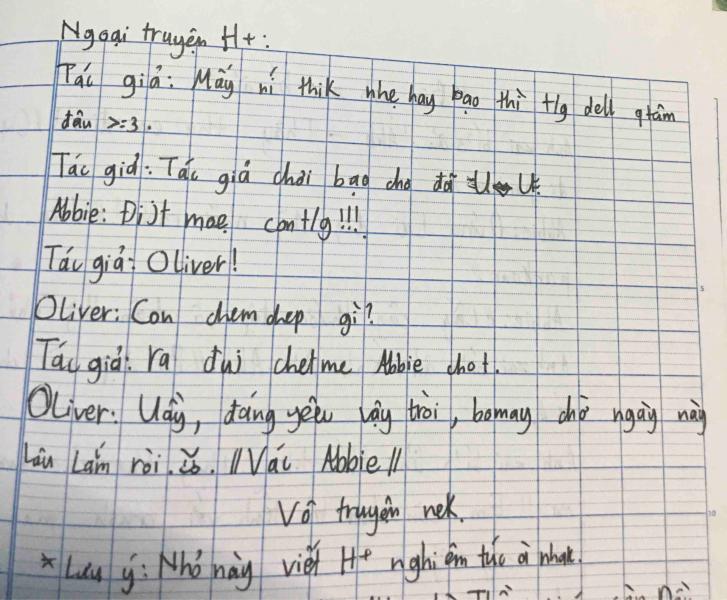 Ngoại truyện H+:
Tác giả: Mấy ní thik nhẹ hay bạo thì t/g dell qtâm
đâu >:3.
Tác giả: Tác giả chơi bạo cho đã UwU.
Abbie: Địjt moẹ con t/g!!!
Tác giả: Oliver!
Oliver: Con chem chep gì?
Tác giả: ra đụi chetme Abbie chot.
Oliver: Uầy, đáng yêu vậy trời, bomay chờ ngày này
lâu lắm rồi. //Vác Abbie//
Vô truyện nek.
* Lưu ý: Nhỏ này viết H+ nghiêm túc à nhak.